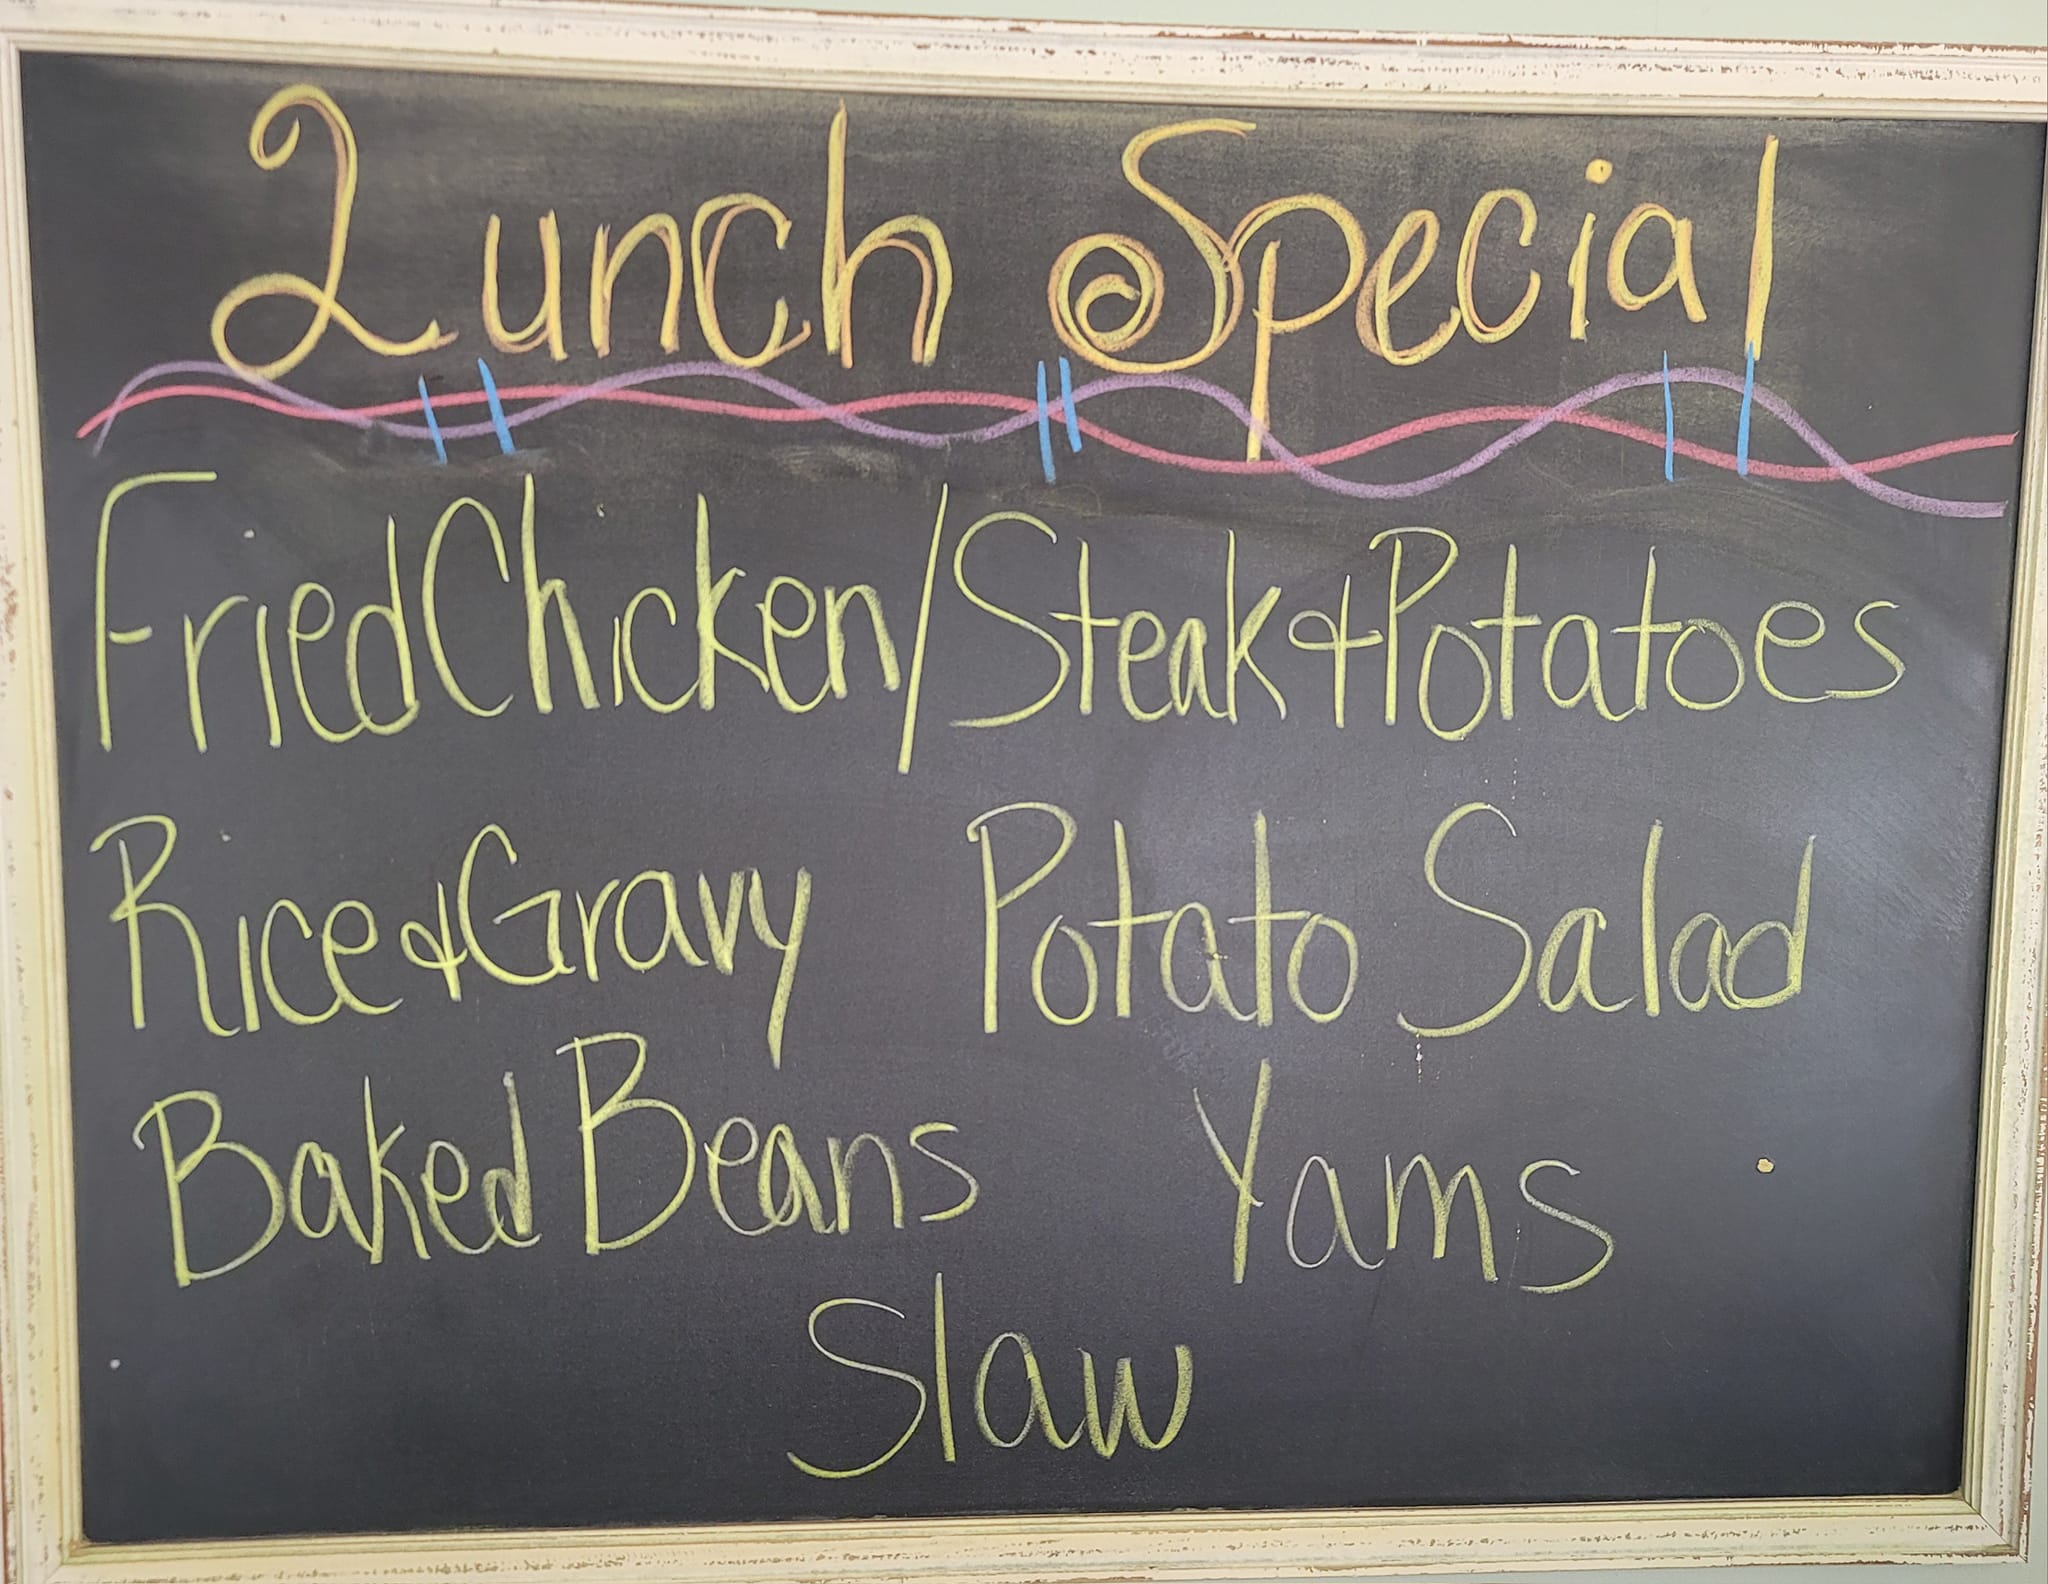 Lunch Special
Fried Chicken/Steak & Potatoes
Rice & Gravy Potato Salad
Baked Beans Yams
Slaw